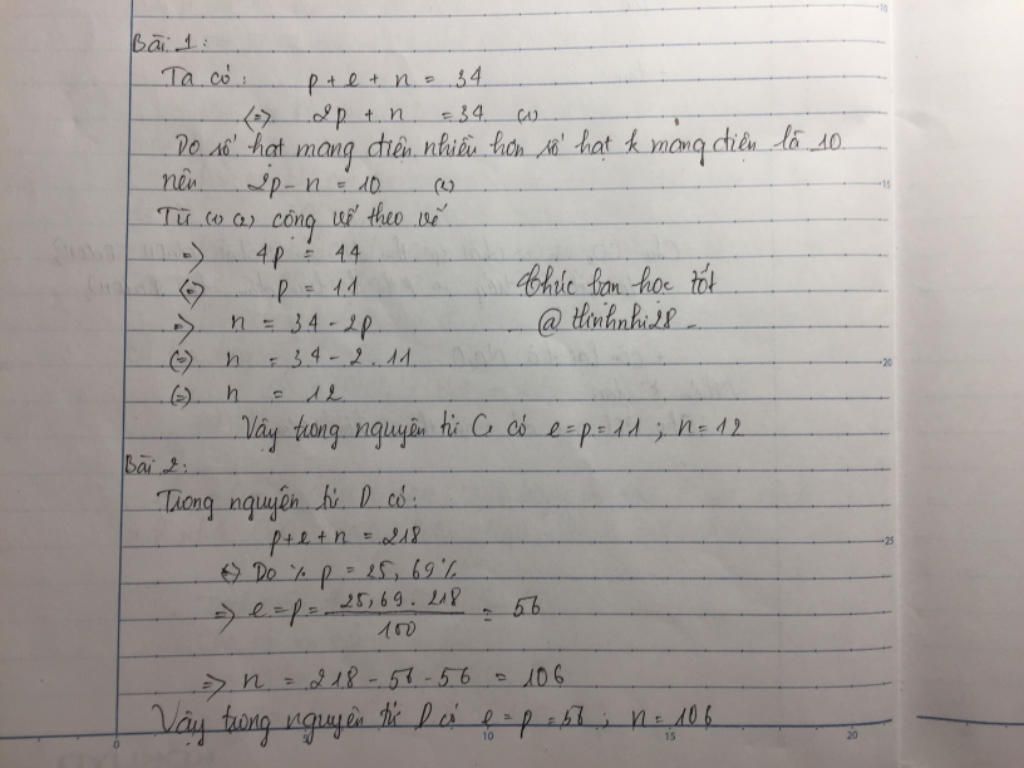 Bài 1:
Ta có: p + e + n = 34
(=) 2p + n = 34 (1)
Do số hạt mang điện nhiều hơn số hạt k mang điện là 10
nên 2p - n = 10 (2)
Từ (1) (2) cộng vế theo vế
=) 4p = 44
(=) p = 11
=) n = 34 - 2p
(=) n = 34 - 2.11
(=) n = 12
Chúc bạn học tốt
@ thinhnhi28
Vậy trong nguyên tử C có e = p = 11 ; n = 12
Bài 2:
Trong nguyên tử D có:
p + e + n = 218
(=) Do % p = 25,69%
=) e = p = 25,69 . 218 / 100 = 56
=) n = 218 - 56 - 56 = 106
Vậy trong nguyên tử D có e = p = 56 ; n = 106
10
15
20
25
0
5
10
15
20